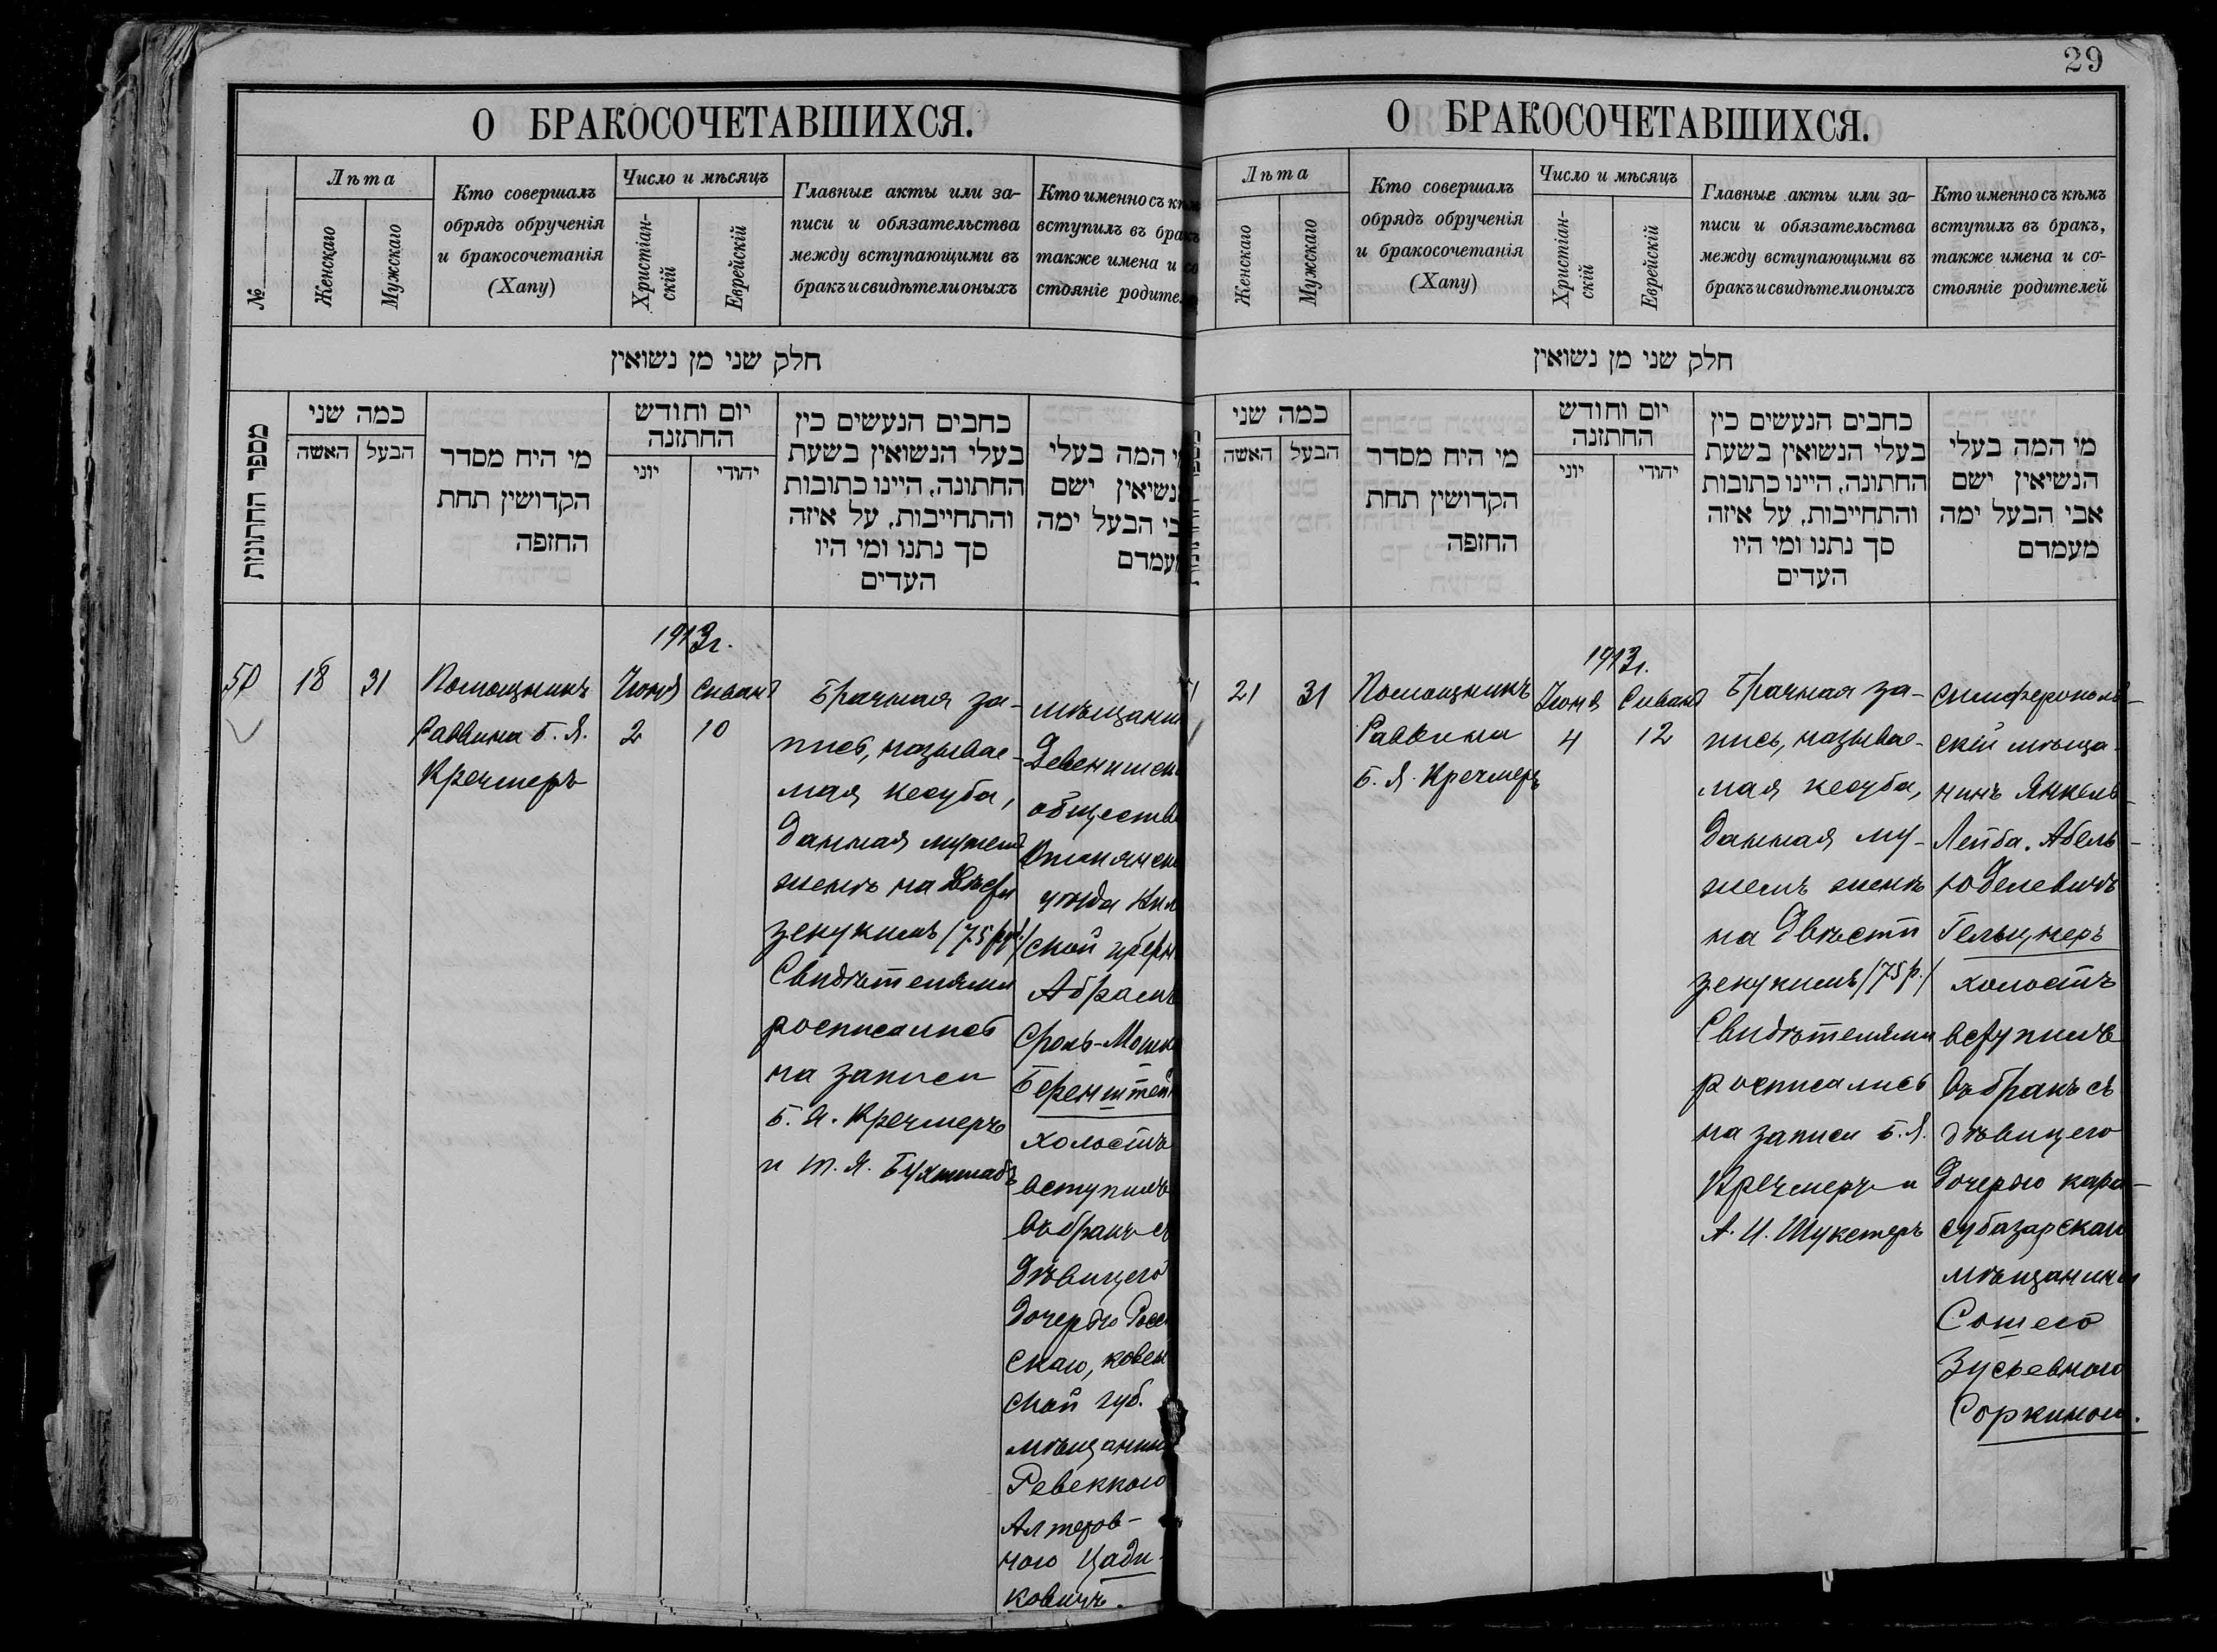 29
О БРАКОСОЧЕТАВШИХСЯ.
№
Лѣта
Женскаго
Мужскаго
Кто совершалъ
обрядъ обрученія
и бракосочетанія
(Хапу)
Число и мѣсяцъ
Христіан-
скій
Еврейскій
Главные акты или за-
писи и обязательства
между вступающими въ
бракъ и свидѣтели оныхъ
Кто именно съ кѣмъ
вступилъ въ бракъ
также имена и со
стояніе родите
חלק שני מן נשואין
מספר החתונות
כמה שני
האשה
הבעל
מי היח מסדר
הקדושין תחת
החזפה
יום וחודש
החתזנה
יוני
יהודי
כחבים הנעשים כין
בעלי הנשואין בשעת
החתונה, היינו כתובות
והתחייבות, על איזה
סך נתנו ומי היו
העדים
י המה בעלי
נשיאין ישם
בי הבעל ימה
מעמדם
1913г.
50
18
31
Помощникъ
Раввина Б. Я.
Кречмеръ
Іюня
2
Сиванъ
10
Брачная за-
пись, называе-
мая кесуба,
данная мужемъ
женѣ на двѣсти
зекукимъ (75 руб.)
Свидѣтелями
росписались
на записи
Б. Я. Кречмеръ
и Бухштабъ
мѣщанин
Девенишск
обществ
Ошмянск
уѣзда Вил
ской губерн
Абрамъ
Сроль-Мошк
Беренштейн
холостъ
вступилъ
въ бракъ съ
дѣвицею
дочерью Россі
скаго, ковен
ской губ.
мѣщанин
Ревеккою
Алтеров-
ною Цади-
ковичъ.
О БРАКОСОЧЕТАВШИХСЯ.
Лѣта
Женскаго
Мужскаго
Кто совершалъ
обрядъ обрученія
и бракосочетанія
(Хапу)
Число и мѣсяцъ
Христіан-
скій
Еврейскій
Главные акты или за-
писи и обязательства
между вступающими въ
бракъ и свидѣтели оныхъ
Кто именно съ кѣмъ
вступилъ въ бракъ,
также имена и со-
стояніе родителей
חלק שני מן נשואין
כמה שני
האשה
הבעל
מי היח מסדר
הקדושין תחת
החזפה
יום וחודש
החתזנה
יוני
יהודי
כחבים הנעשים כין
בעלי הנשואין בשעת
החתונה, היינו כתובות
והתחייבות, על איזה
סך נתנו ומי היו
העדים
מי המה בעלי
הנשיאין ישם
אבי הבעל ימה
מעמדם
1913г.
21
31
Помощникъ
Раввина
Б. Я. Кречмеръ
Іюня
4
Сиванъ
12
Брачная за-
пись, называе-
мая кесуба,
данная му-
жемъ женѣ
на двѣсти
зекукимъ (75 р.)
Свидѣтелями
росписались
на записи Б. Я.
Кречмеръ и
А. И. Шукстеръ
Симферополь-
скій мѣща-
нинъ Янкель-
Лейба. Абель-
Юделевичъ
Гельцнеръ
холостъ
вступилъ
въ бракъ съ
дѣвицею
дочерью кара-
субазарскаго
мѣщанина
Сошею
Зусьевною
Соркиною.